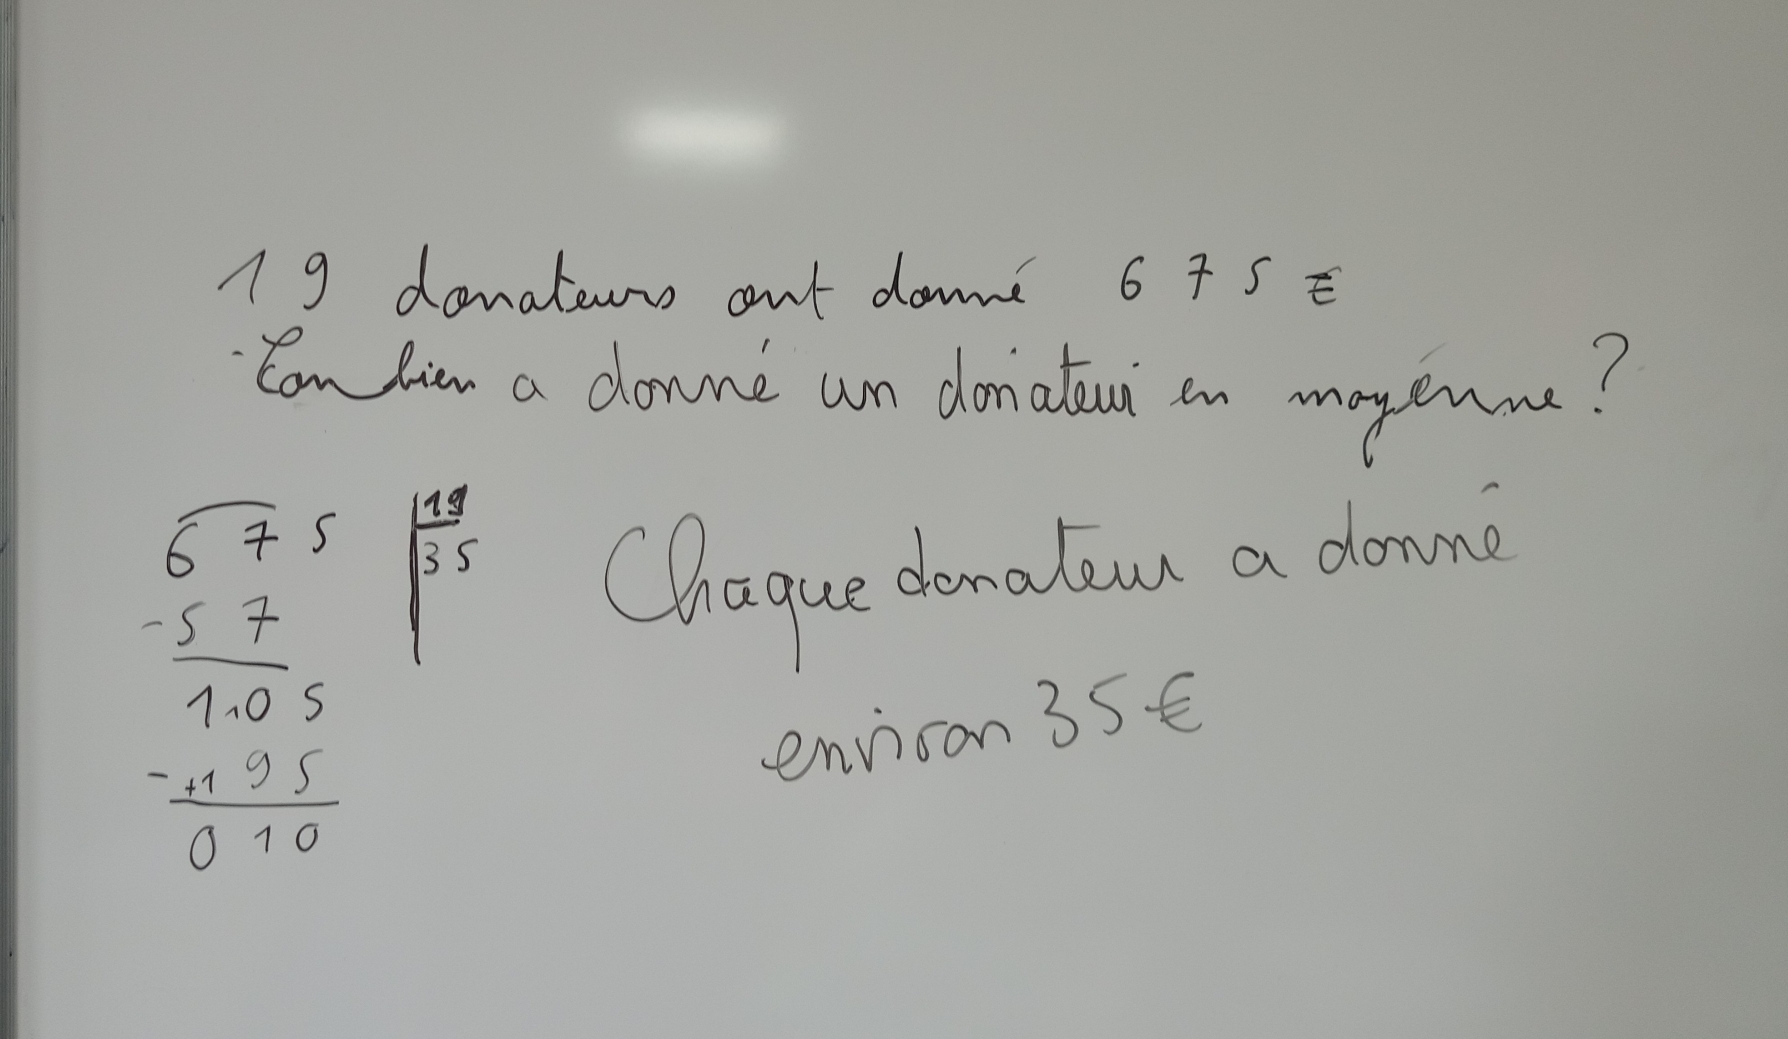 19 donateurs ont donné 675 €
Combien a donné un donateur en moyenne ?
675 | 19
- 57 | 35
105
- 195
010
Chaque donateur a donné
environ 35 €